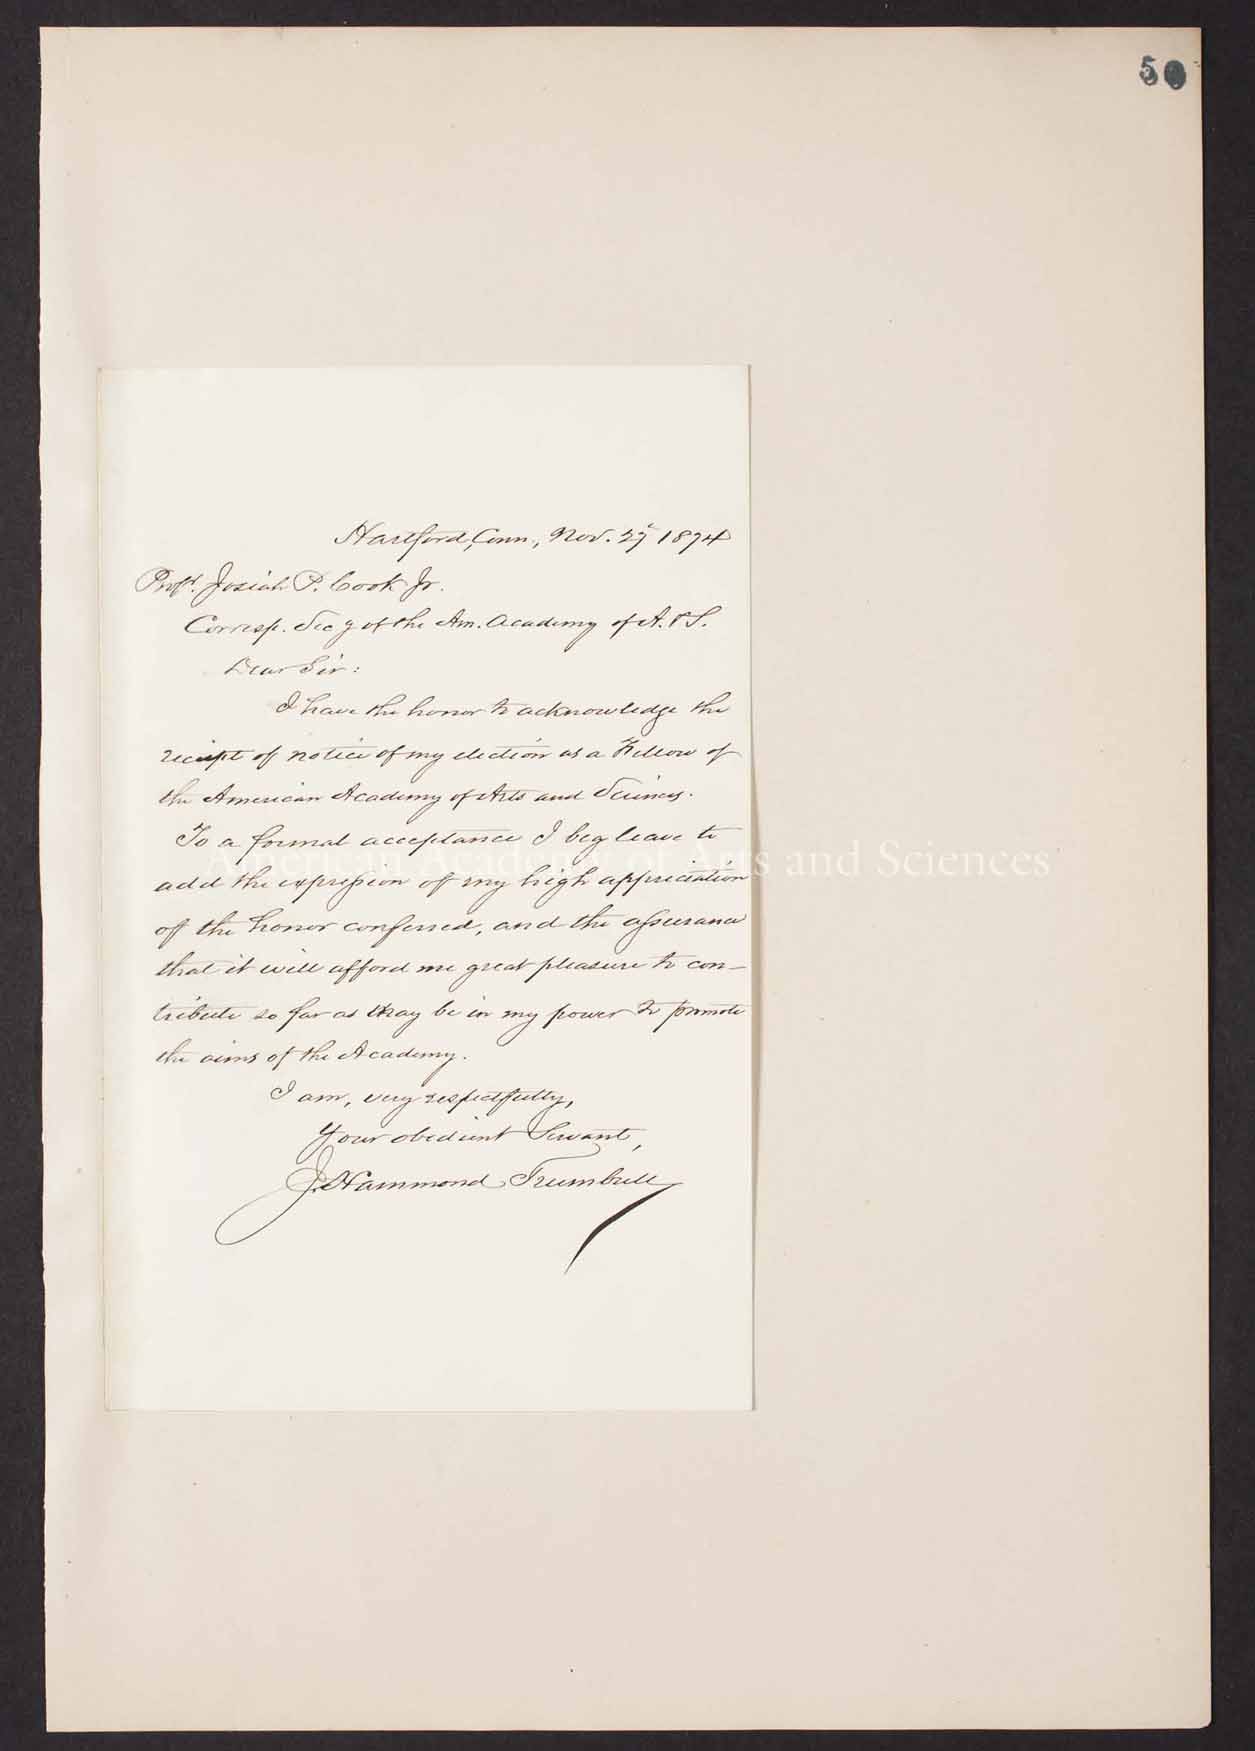 50
Hartford, Conn., Nov. 27 1874
Prof. Josiah P. Cook Jr.
Corresp. Sec'y of the Am. Academy of A. & S.
Dear Sir:
I have the honor to acknowledge the
receipt of notice of my election as a Fellow of
the American Academy of Arts and Sciences.
To a formal acceptance I beg leave to
American Academy of Arts and Sciences
add the expression of my high appreciation
of the honor conferred, and the assurance
that it will afford me great pleasure to con-
tribute so far as may be in my power to promote
the aims of the Academy.
I am, very respectfully,
Your obedient Servant,
J. Hammond Trumbull